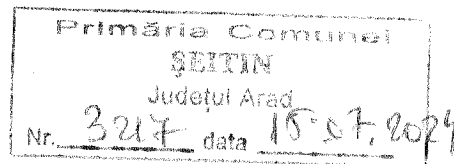 Primăria Comunei
ȘEITIN
Județul Arad
Nr. 3217 data 15.07.2024